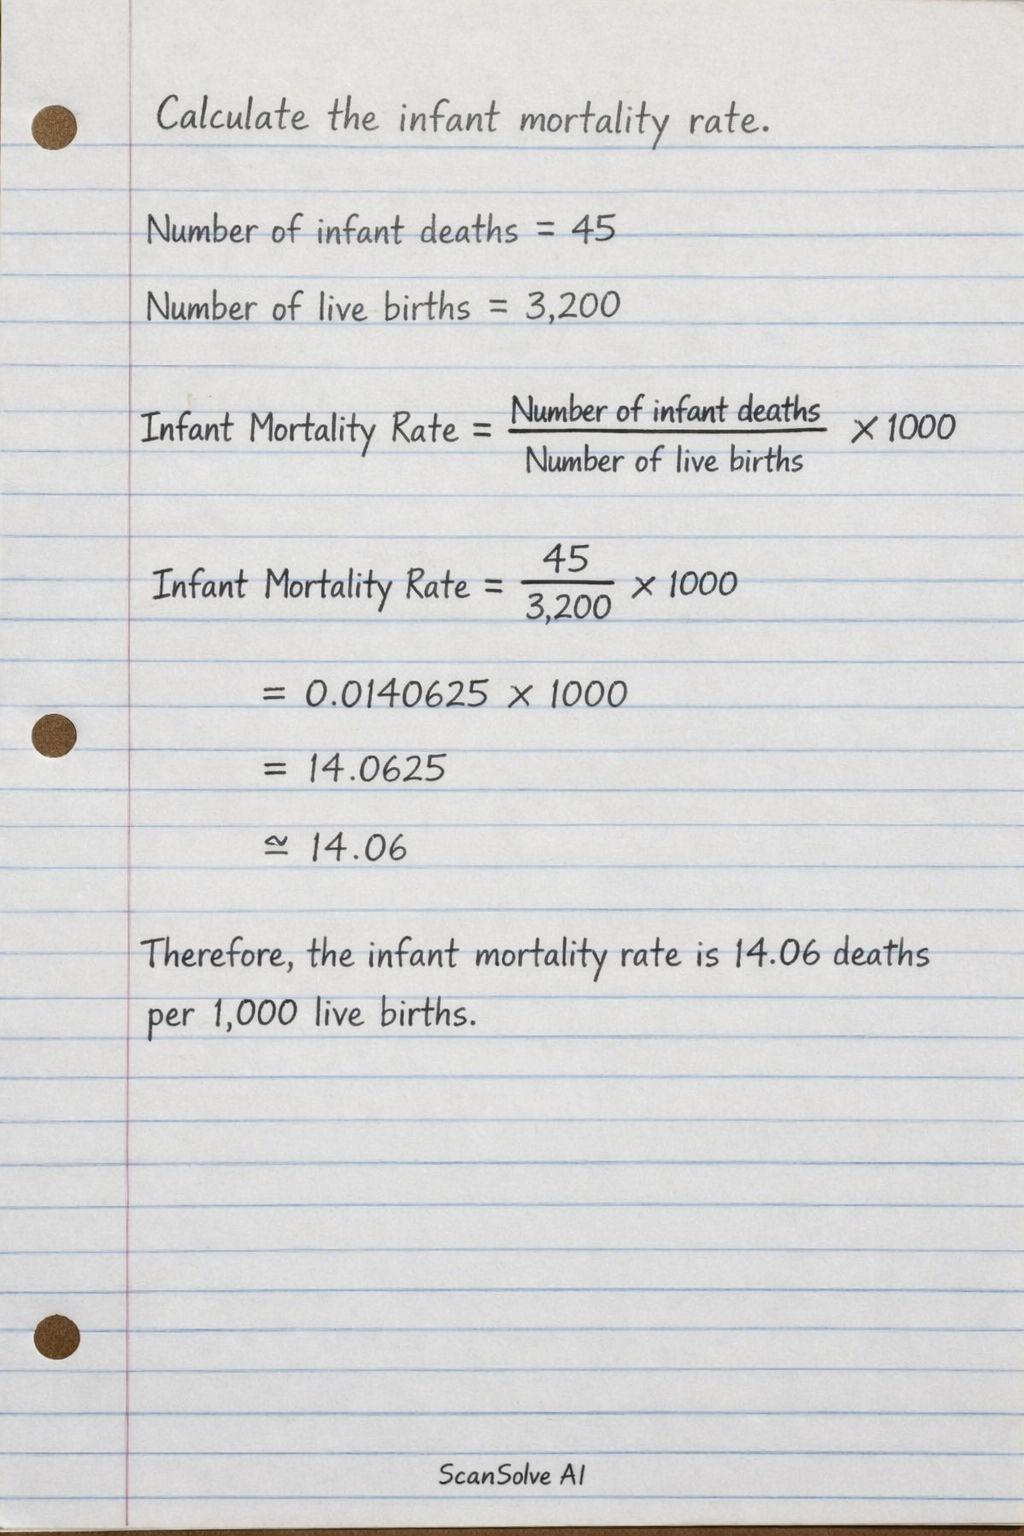 Calculate the infant mortality rate.
Number of infant deaths = 45
Number of live births = 3,200
Infant Mortality Rate = Number of infant deaths / Number of live births × 1000
Infant Mortality Rate = 45 / 3,200 × 1000
= 0.0140625 × 1000
= 14.0625
≅ 14.06
Therefore, the infant mortality rate is 14.06 deaths
per 1,000 live births.
ScanSolve AI